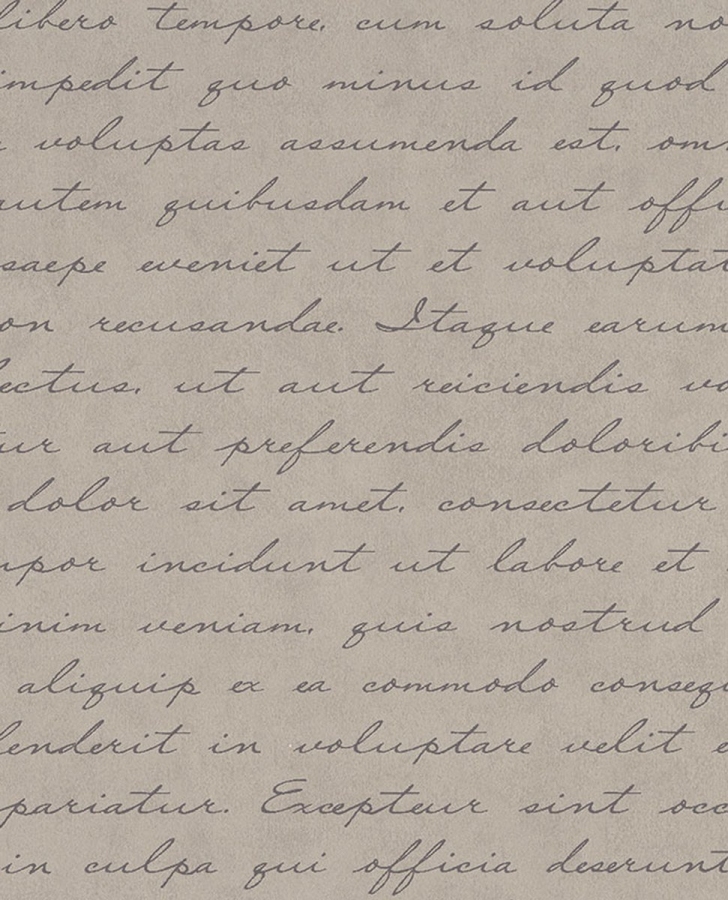 libero tempore, cum soluta no
impedit quo minus id quod
voluptas assumenda est, om
autem quibusdam et aut offi
saepe eveniet ut et voluptat
on recusandae. Itaque earum
lectus, ut aut reiciendis vo
tur aut preferendis doloribi
dolor sit amet, consectetur
mpor incidunt ut labore et
inim veniam, quis nostrud
aliquip ex ea commodo consequ
enderit in voluptare velit e
pariatur. Excepteur sint occ
in culpa qui officia deserunt